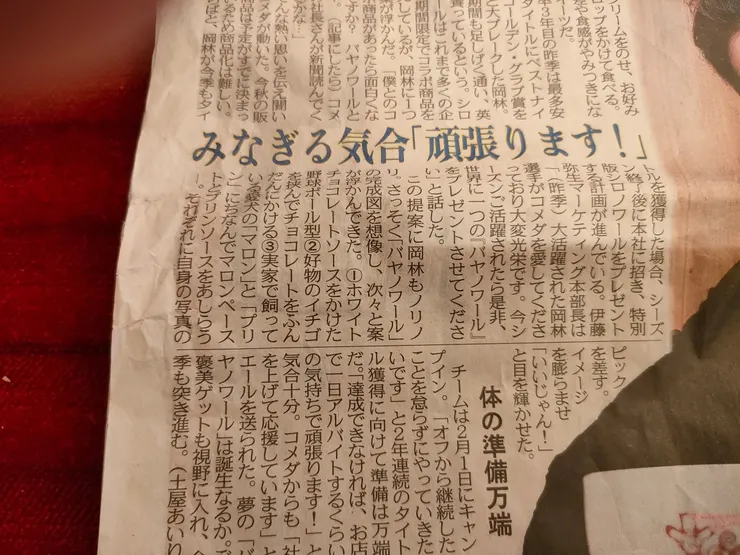 リームをのせ、お好み
ロップをかけて食べる。
食感がやみつきにな
イーツだ。
年３年目の昨季は最多安
タイトルにベストナイ
ゴールデン・グラブ賞を
大ブレークした岡林。
期間も足しげく通い、英
養っているという。シロ
ールはこれまで多くの企
期間限定でコラボ商品を
しているが、岡林に一つ
が浮かんだ。「僕とのコ
商品があったら面白くな
ますか？　バヤノワールと
（記事にしたら）コメ
社長さんが新聞読んでく
かな…」
んな熱い思いを伝え聞い
コメダが動いた。今秋の販
商品は予定がすでに決まっ
るため商品化は難しい。
ばと、岡林が今季もタイ
みなぎる気合「頑張ります！」
トルを獲得した場合、シーズ
ン終了後に本社に招き、特別
版シロノワールをプレゼント
する計画が進んでいる。伊藤
弥生マーケティング本部長は
「（昨季）大活躍された岡林
選手がコメダを愛してくださ
っており大変光栄です。今シ
ーズンご活躍されたら是非、
世界に一つの『バヤノワール』
をプレゼントさせてくださ
い」と話した。
この提案に岡林もノリノ
リ。さっそく「バヤノワール」
の完成図を想像し、次々と案
が浮かんできた。①ホワイト
チョコレートソースをかけた
野球ボール型②好物のイチゴ
を挟んでチョコレートをふん
だんにかける③実家で飼って
いる愛犬の「マロン」と「プリ
ン」にちなんでマロンペース
トとプリンソースをあしらう
―。それぞれに自身の写真の
ピック
を差す。
イメージ
を膨らませ
「いいじゃん！」
と目を輝かせた。
体の準備万端
チームは２月１日にキャン
プイン。「オフから継続した
ことを怠らずにやっていきた
いです」と２年連続のタイト
ル獲得に向けて準備は万端
だ。「達成できなければ、お店
で一日アルバイトするくらい
の気持ちで頑張ります！」と
気合十分。コメダからも「社
を上げて応援しています」と
エールを送られた。夢の「バ
ヤノワール」は誕生なるか。ご
褒美ゲットも視野に入れ、今
季も突き進む。（土屋あいり